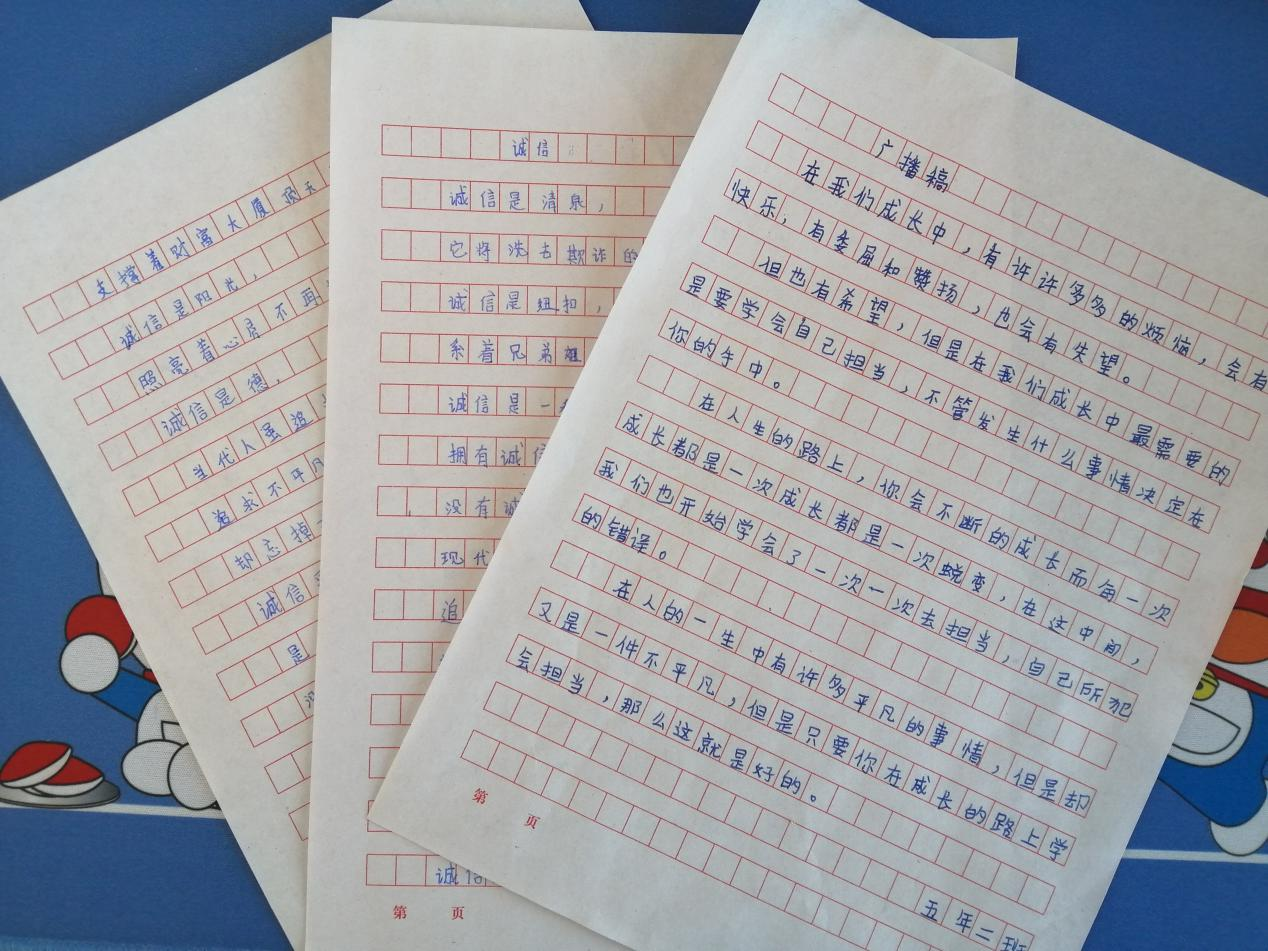 支撑着财富大厦顶天
诚信是阳光，
照亮着心房不再
诚信是德，
当代人虽追
追求不平凡
却忘掉
诚信
是
没
诚信
诚信是清泉，
它将洗去欺诈的
诚信是纽扣，
系着兄弟姐
诚信是一
拥有诚信
没有诚
现代
追
诚信
第 页
广播稿
在我们成长中，有许许多多的烦恼，会有
快乐，有委屈和赞扬，也会有失望。
但也有希望，但是在我们成长中最需要的
是要学会自己担当，不管发生什么事情决定在
你的手中。
在人生的路上，你会不断的成长而每一次
成长都是一次成长都是一次蜕变，在这中间，
我们也开始学会了一次一次去担当，自己所犯
的错误。
在人的一生中有许多平凡的事情，但是却
又是一件不平凡，但是只要你在成长的路上学
会担当，那么这就是好的。
五年二班
第 页